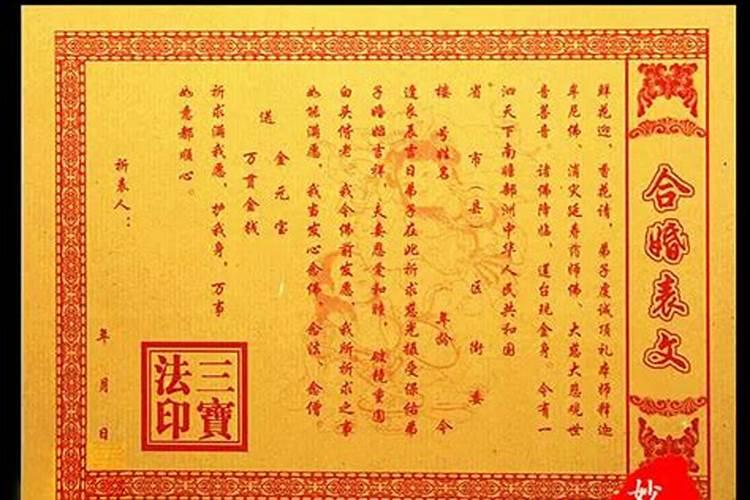 合婚表文
鲜花迎,香花请,弟子虔诚顶礼本师释迦
牟尼佛、消灾延寿药师佛、大慈大悲观世
音菩音。诸佛降临,道台现金身。今有一
泗天下南瞻部洲中华人民共和国
省 市(县) 区 街 委
楼 号姓名 年龄 今
逢良辰吉日弟子在此祈求慈光摄受保佑弟
子婚姻吉祥,夫妻恩爱和睦,破镜重圆
白头偕老。我今佛前发愿,我所祈求之事
如能满愿,我当发心念佛、念法、念僧。
送
金元宝
万贯金钱
祈求满我愿,护我身,万事
如意都顺心。
祈表人:
年 月 日
三寶
法印
妙